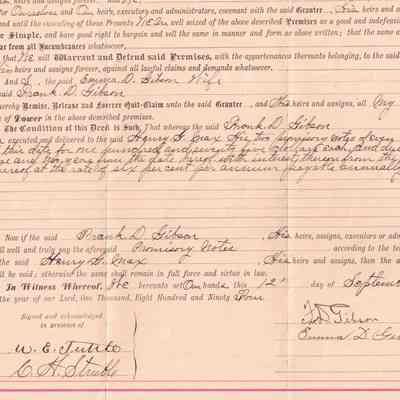 for Ourselves and Our heirs, executors, administrators, covenant with the said Grantee, His heirs and
and until the ensealing of these Presents We are well seized of the above described Premises as a good and indefeas
Simple, and have good right to bargain and sell the same in manner and form as above written; that the same
ear from all Incumbrances whatsoever,
that We will Warrant and Defend said Premises, with the appurtenances thereto belonging, to the said
heirs and assigns forever, against all lawful claims and demands whatsoever.
And I, the said Emma D. Gibson Wife
said Frank D. Gibson
hereby Remise, Release and Forever Quit-Claim unto the said Grantee and His heirs and assigns, all My
of Dower in the above described premises.
The Condition of this Deed is Such, That whereas the said Frank D. Gibson
executed and delivered to the said Henry G. Wax His two promisory notes of even
this date for one hundred and seventy five dollars each, and due
and years from the date hereof with interest thereon from the
at the rate of six per cent per annum payable annually
Now if the said Frank D. Gibson, His heirs, assigns, executors or adm
ll well and truly pay the aforesaid Promisory Notes according to the te
the said Henry G. Wax, His heirs and assigns, then the a
ll be void; otherwise the same shall remain in full force and virtue in law.
In Witness Whereof, We hereunto set Our hands, this 12" day of Septemb
the year of our Lord, One Thousand, Eight Hundred and Ninety Four
Signed and acknowledged
in presence of
F. D. Gibson
Emma D. Gi
W. E. Tuttle
C. H. Struble